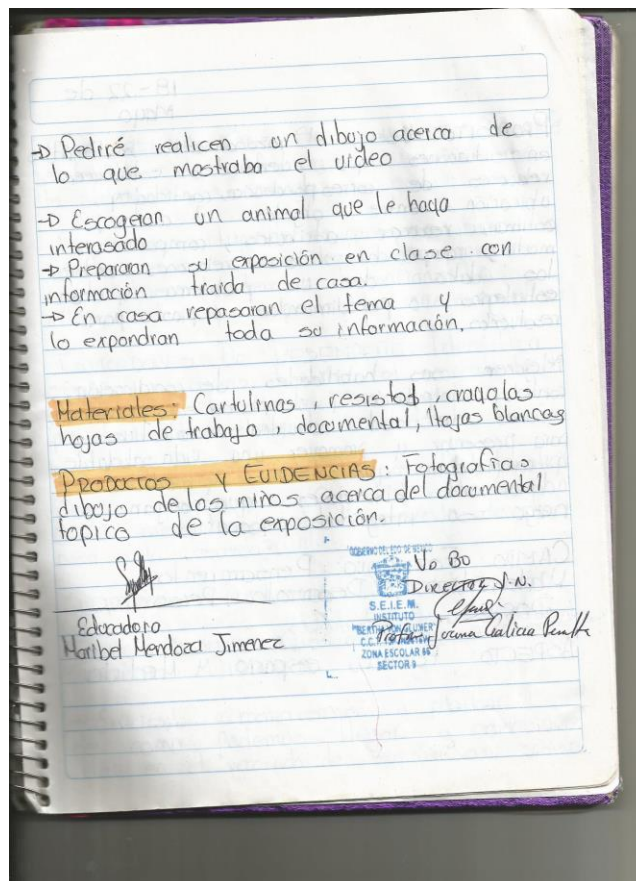 18-22 de
Mayo
→ Pediré realicen un dibujo acerca de
lo que mostraba el video
→ Escogeran un animal que le haya
interasado
→ Prepararan su exposición en clase con
información traida de casa.
→ En casa repasaran el tema y
lo expondran toda su información.
Materiales: Cartulinas, resistol, crayolas
hojas de trabajo, documental, Hojas blancas
PRODUCTOS Y EVIDENCIAS: Fotografías
dibujo de los niños acerca del documental
topico de la exposición.
GOBIERNO DEL EDO DE MEXICO
Vo Bo
DIRECTOR J.N.
S.E.I.E.M.
INSTITUTO
ZONA ESCOLAR 68
SECTOR 9
Educadora
Maribel Mendoza Jimenez